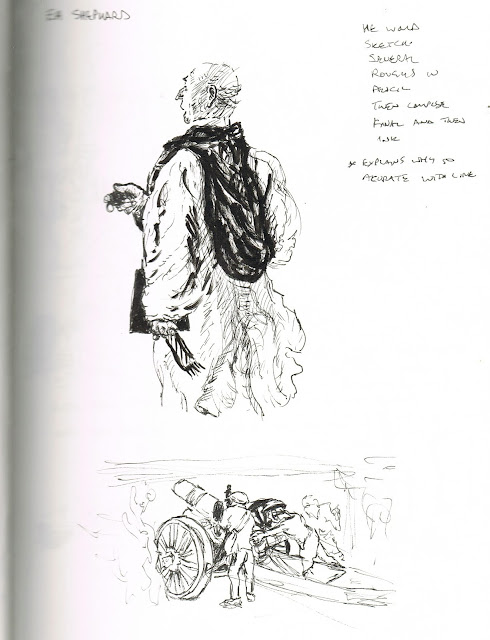 EH SHEPHARD
HE WOULD
SKETCH
SEVERAL
ROUGHS IN
PENCIL
THEN COMPOSE
FINAL AND THEN
INK
* EXPLAINS WHY SO
ACURATE WITH LINE